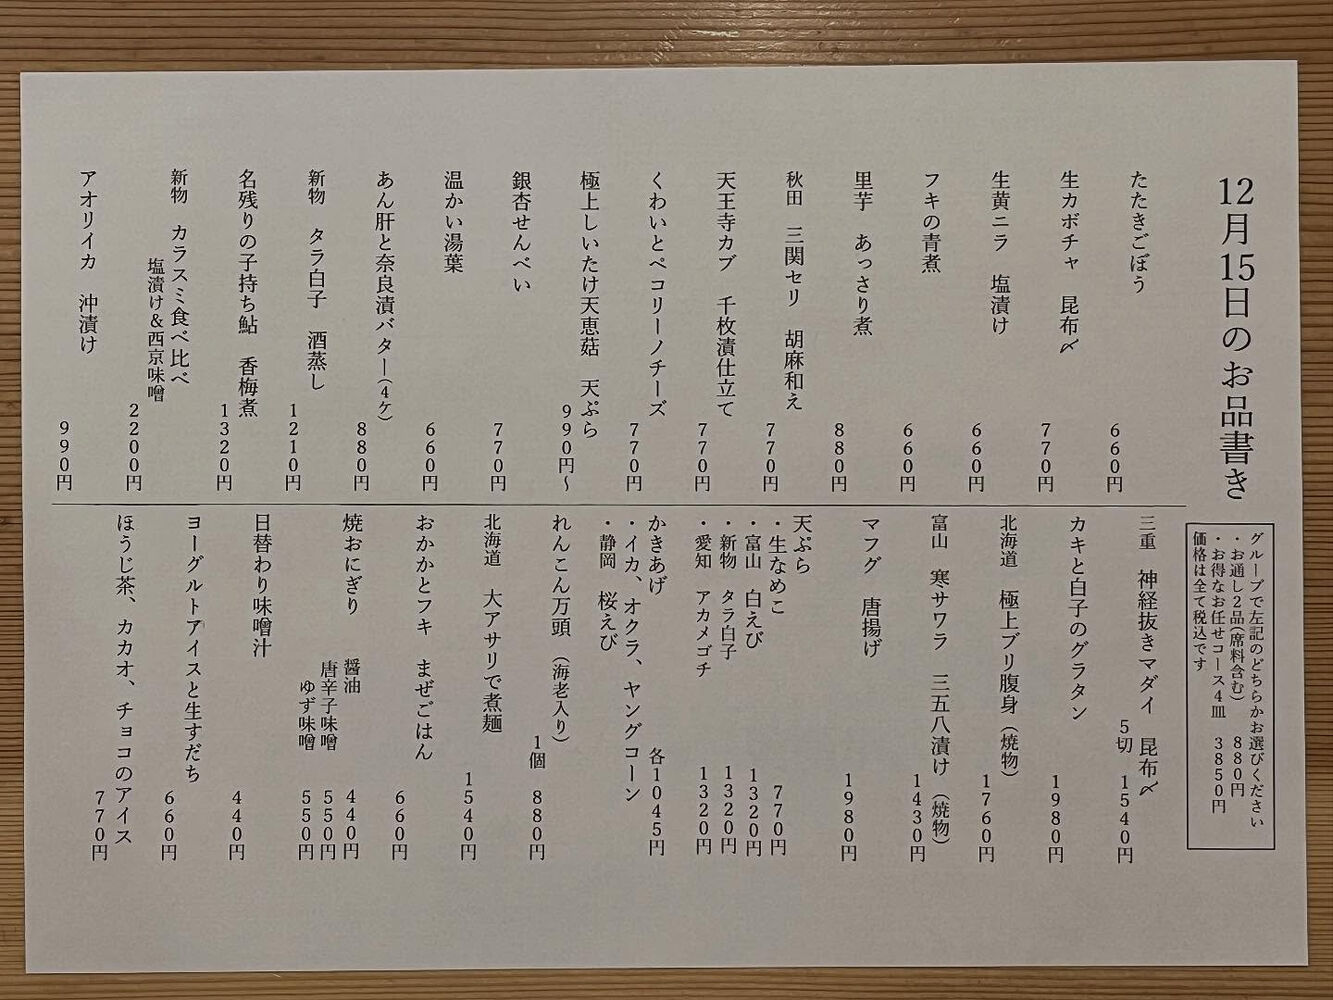 12月15日のお品書き
グループで左記のどちらかお選びください
・お通し2品(席料含む) 880円
・お得なお任せコース4皿 3850円
価格は全て税込です
たたきごぼう 660円
生カボチャ 昆布〆 770円
生黄ニラ 塩漬け 660円
フキの青煮 660円
里芋 あっさり煮 880円
秋田 三関セリ 胡麻和え 770円
天王寺カブ 千枚漬仕立て 770円
くわいとペコリーノチーズ 770円
極上しいたけ天恵菇 天ぷら 990円～
銀杏せんべい 770円
温かい湯葉 660円
あん肝と奈良漬バター(4ケ) 880円
新物 タラ白子 酒蒸し 1210円
名残りの子持ち鮎 香梅煮 1320円
新物 カラスミ食べ比べ
塩漬け&西京味噌 2200円
アオリイカ 沖漬け 990円
三重 神経抜きマダイ 昆布〆
5切 1540円
カキと白子のグラタン 1980円
北海道 極上ブリ腹身(焼物) 1760円
富山 寒サワラ 三五八漬け(焼物) 1430円
マフグ 唐揚げ 1980円
天ぷら
・生なめこ 770円
・富山 白えび 1320円
・新物 タラ白子 1320円
・愛知 アカメゴチ 1320円
かきあげ 各1045円
・イカ、オクラ、ヤングコーン
・静岡 桜えび
れんこん万頭(海老入り)
1個 880円
北海道 大アサリで煮麺 1540円
おかかとフキ まぜごはん 660円
焼おにぎり 醤油 440円
唐辛子味噌 550円
ゆず味噌 550円
日替わり味噌汁 440円
ヨーグルトアイスと生すだち 660円
ほうじ茶、カカオ、チョコのアイス 770円